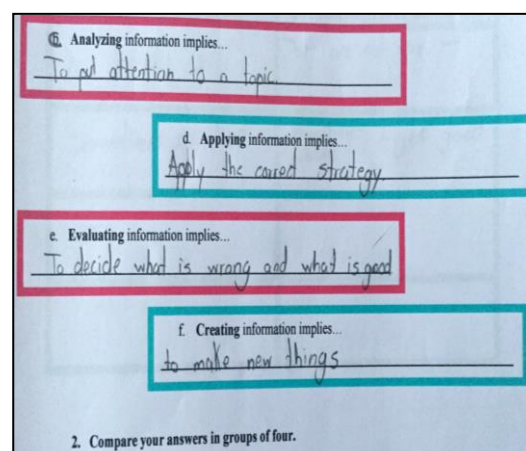 b. Analyzing information implies...
To put attention to a topic.
d. Applying information implies...
Apply the correct strategy.
e. Evaluating information implies...
To decide what is wrong and what is good
f. Creating information implies...
to make new things
2. Compare your answers in groups of four.